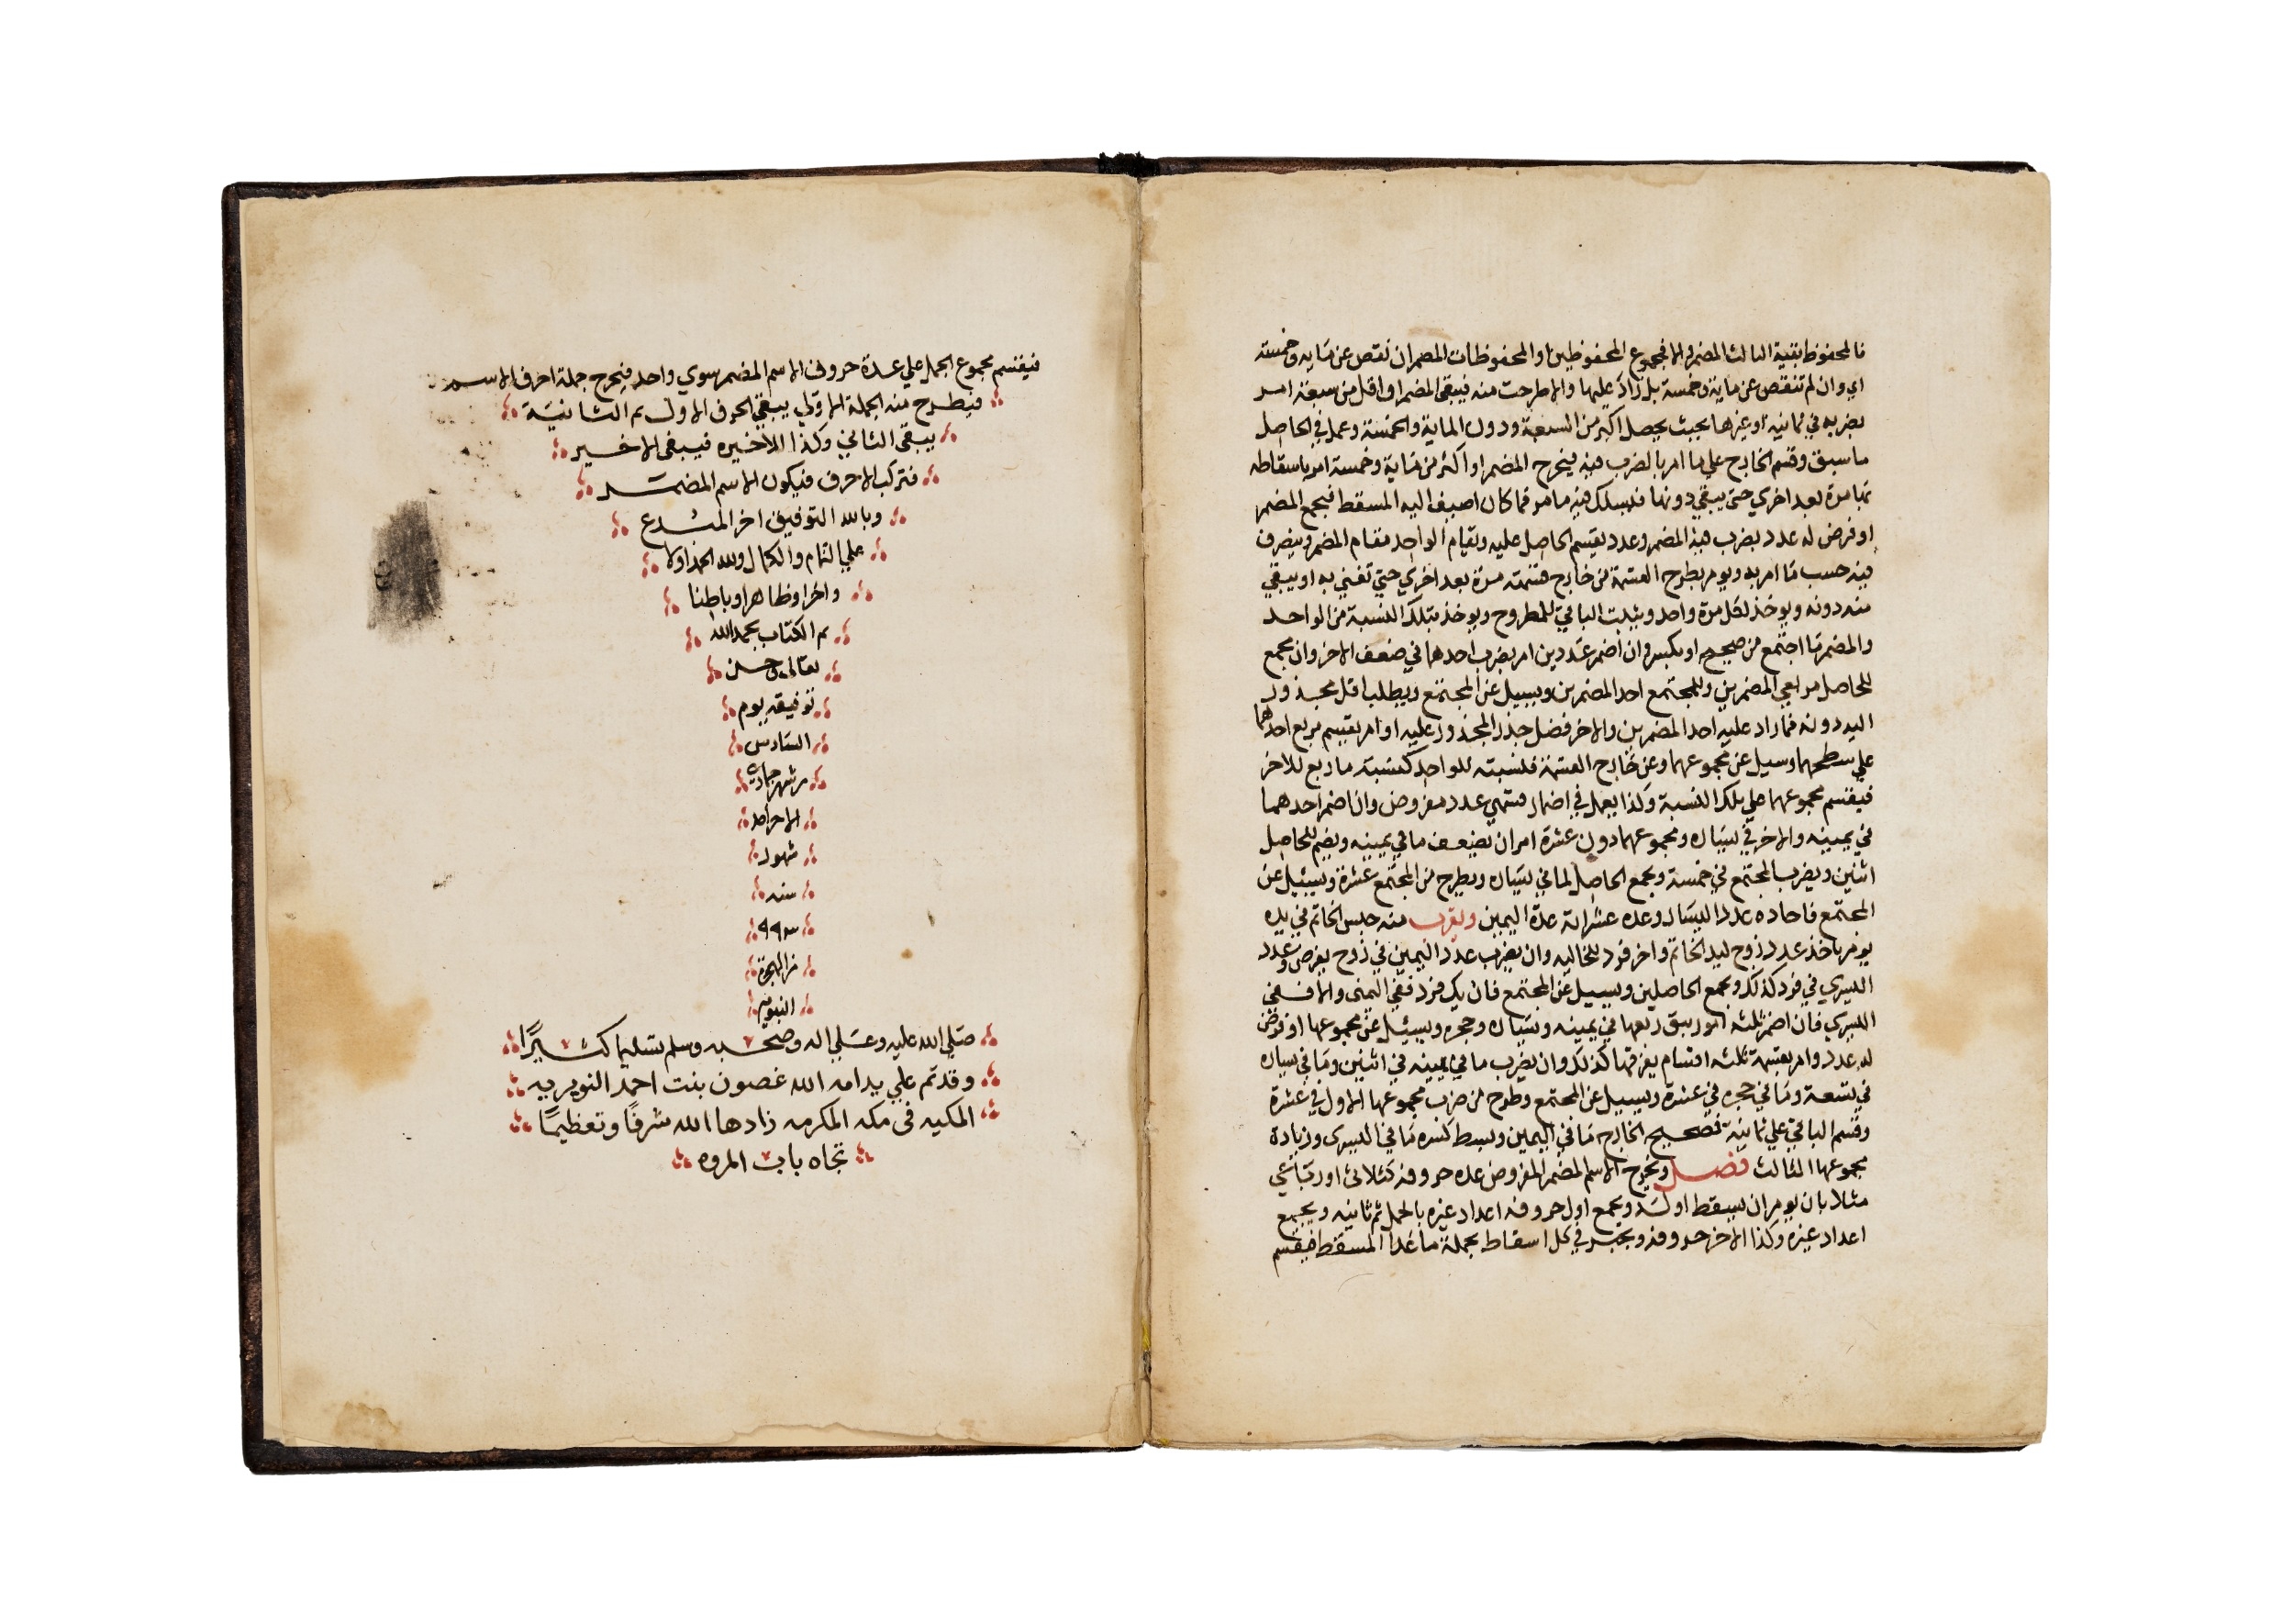 فالمحفوظ بقية الثالث المضمر والا فمجموع المحفوظين او المحفوظات المضمر ان نقص عن مايه وخمسة
اي وان لم تنقص عن ماية وخمسة بل زاد عليها والا طرحت منه فيبقى المضمر او اقل من سبعة امر
بضربه في ثمانيه او غيرها بحيث يحصل اكثر من السبعة ودون الماية والخمسة وعمل في الحاصل
ما سبق وقسم الخارج علي ما امر بالضرب فيه فيخرج المضمر او اكثر من ماية وخمسة امر باسقاطه
بها مرة بعد اخري حتى يبقي دونها فيسلك فيه ما مر فما كان اضيف اليه المسقط فيجمع المضمر
او فرض له عدد يضرب فيه المضمر وعدد يقسم الحاصل عليه ويقام الواحد مقام المضمر ويتصرف
فيه حسب ما امر به ويومر بطرح القسمة من خارج قسمته مرة بعد اخري حتي تفني به او يبقي
منه دونه ويوخذ لكل مرة واحد ويثبت الباقي للمطروح ويوخذ بتلك النسبة من الواحد
والمضمر ما اجتمع من صحيح او كسر وان اضمر عددين امر بضرب احدهما في ضعف الاخر وان يجمع
للحاصل مربعي المضمرين وللمجتمع احد المضمرين ويسيل عن المجتمع ويطلب اقل مجذور
اليه دونه فما زاد عليه احد المضمرين والاخر فضل جذر المجذور عليه او امر بقسم مربع احدهما
علي سطحهما وسيل عن مجموعهما وعن خارج القسمة فنسبته للواحد كنسبة ما ربع للاخر
فيقسم مجموعهما علي تلك النسبة وكذا يعمل في اضمار قسمي عدد مفروض وان اضمر احدهما
في يمينه والاخر في يساره ومجموعهما دون عشرة امر ان يضعف ما في يمينه ويضم للحاصل
اثنين ويضرب المجتمع في خمسة ويجمع الحاصل لما في يساره ويطرح من المجتمع عشرة ويسيل عن
المجتمع فاحاده عدد اليسار وعدة عشراته عدة اليمين ويقرب منه حبس الخاتم في يده
يومر باخذ عدد زوج ليد الخاتم واخر فرد للخاليه وان يضرب عدد اليمين في زوج يفرض وعدد
اليسري في فرد كذلك ويجمع الحاصلين ويسيل عن المجتمع فان يك فرد ففي اليمنى والا ففي
اليسري فان اضمر ثلثه امور سبق ريعها في يمينه ويساره وحجره ويسيل عن مجموعها او فرض
له عدد وامر بقسمة ثلثه اقسام يفرقها كذلك وان يضرب ما في يمينه في اثنين وما في يساره
في تسعة وما في حجره في عشرة ويسيل عن المجتمع وطرح من ضرب مجموعها الاول في عشرة
وقسم الباقي علي ثمانية فصحيح الخارج ما في اليمين وبسط كسره ما في اليسري وزيادة
مجموعها الثالث فصل ويخرج الاسم المضمر المفروض عدة حروفه كثلاثي او رباعي
مثلا بان يومر ان يسقط اول ويجمع اول حروفه اعداد غيره بالجمل ثم ثانيه ويجمع
اعداد غيره وكذا الاخر حروفه ويخبر في كل اسقاط بجملة ما عدا المسقط فيقسم
فيقسم مجموع الجمل علي عدة حروف الاسم المضمر سوي واحد فيخرج جملة احرف الاسم
فيطرح منه الجملة الاولي يبقي الحرف الاول ثم الثانية
يبقى الثاني وكذا الاخيره فيبقى الاخير
فتركب الاحرف فيكون الاسم المضمر
وبالله التوفيق اخر المبدع
علي التمام والكمال ولله الحمد اولا
واخرا وظاهرا وباطنا
تم الكتاب بحمد الله
تعالى وحسن
توفيقه يوم
السادس
من شهر جمادى
الاخر احد
شهور
سنه
٩٩٣
من الهجرة
النبويه
صلى الله عليه وعلى اله وصحبه وسلم تسليما كثيرًا
وقد تم علي يد امة الله غصون بنت احمد النويريه
المكيه فى مكه المكرمه زادها الله شرفًا وتعظيمًا
تجاه باب المروه